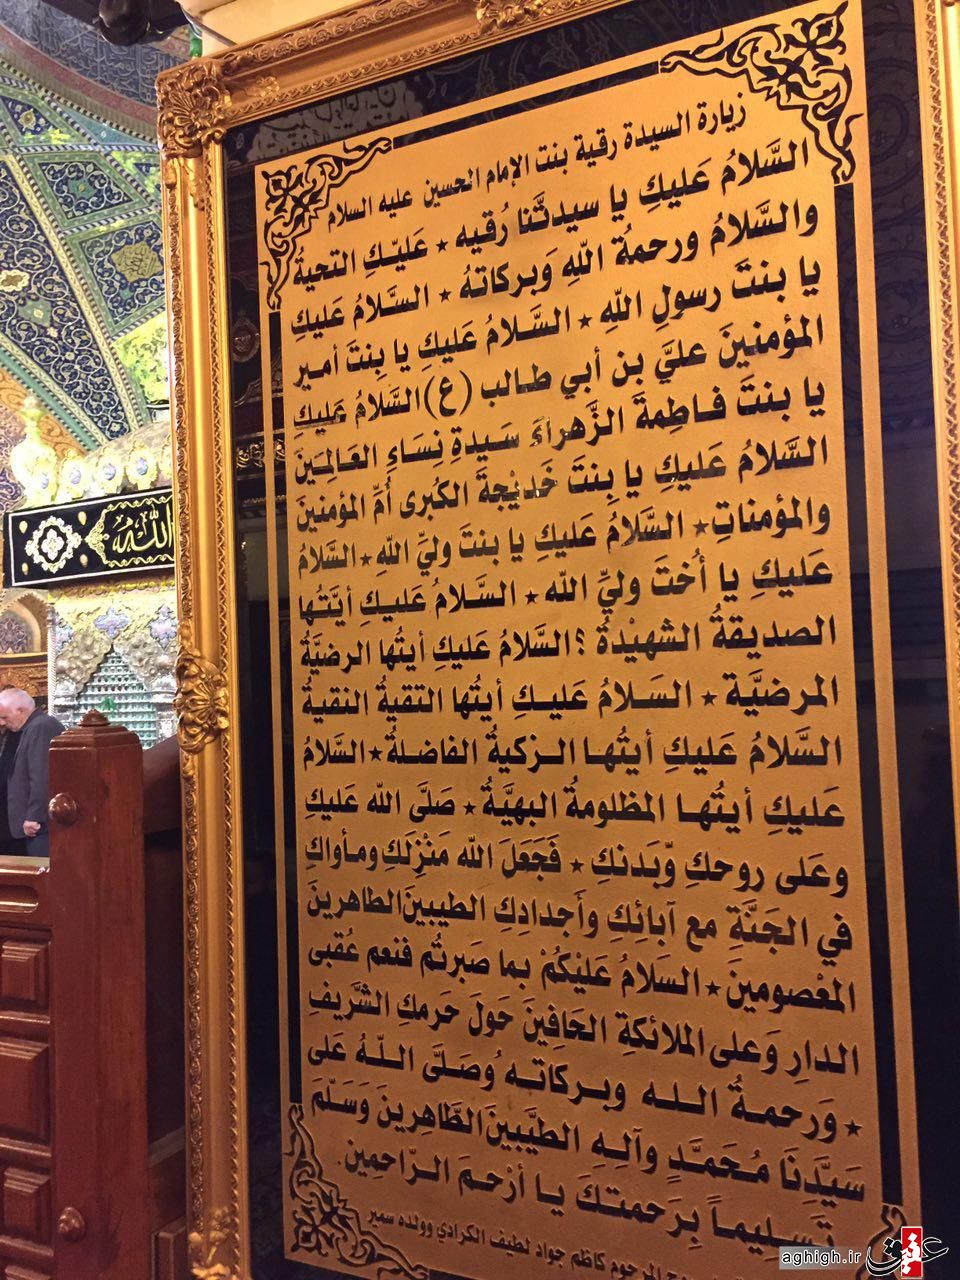 زيارة السيدة رقية بنت الإمام الحسين عليه السلام
السَّلامُ عَليكِ يا سيدتَّنا رُقيه ★ عَليّكِ التحيةُ
والسَّلامُ ورحمةُ اللّهِ وَبركاتهُ ★ السَّلامُ عَليكِ
يا بنتَ رسولِ اللّهِ ★ السَّلامُ عَليكِ يا بِنتَ أمير
المؤمنينَ عليَّ بن أبي طالب (ع) السَّلامُ عَليكِ
يا بنتَ فاطِمةَ الزَّهراءَ سَيدةِ نِساءِ العَالمِينَ
السَّلامُ عَليكِ يا بِنتَ خَديْجةَ الكبرى أُمِّ المؤمنينَ
والمؤمناتِ ★ السَّلامُ عَليكِ يا بنتَ وليِّ اللّهِ ★ السَّلامُ
عَليكِ يا أُختَ وليِّ اللّه ★ السَّلامُ عَليكِ أيَّتُها
الصديقةُ الشهيْدةُ ؟ السَّلامُ عَليكِ أيتُها الرضيَّةُ
المرضيَّة ★ السَلامُ عَليكِ أيتُها التقيةُ النقيةُ
السَّلامُ عَليكِ أيتُها الزكيةُ الفاضلةُ ★ السَّلامُ
عَليكِ أيتُها المظلومةُ البهيَّةُ ★ صَلَّى اللّه عَليكِ
وعَلى روحكِ وّبَدنكِ ★ فَجَعَلَ اللّه مَنْزِلَكِ ومأواكِ
في الجَنَّةِ مع آبائِكِ وأَجدادِكِ الطيبينَ الطاهرينَ
المعْصومينَ ★ السَلامُ عَليْكُمْ بما صَبرتُم فنعم عُقبى
الدارِ وَعلى الملائكةِ الحَافِينَ حَولَ حَرمكِ الشَّريفِ
★ وَرحمةُ الله وبركاته وُصَلَّى اللّهُ عَلى
سَيَّدِنَا مُحَمَّدٍ وآلهِ الطيَّبينَ الطَّاهِرينَ وَسَلَّمَ
تَسليماً بِرَحمتكَ يا أرْحمَ الرّاحمِين.
المرحوم كاظم جواد لطيف الكرادي وولده سمير
الله
عقیق
aghigh.ir